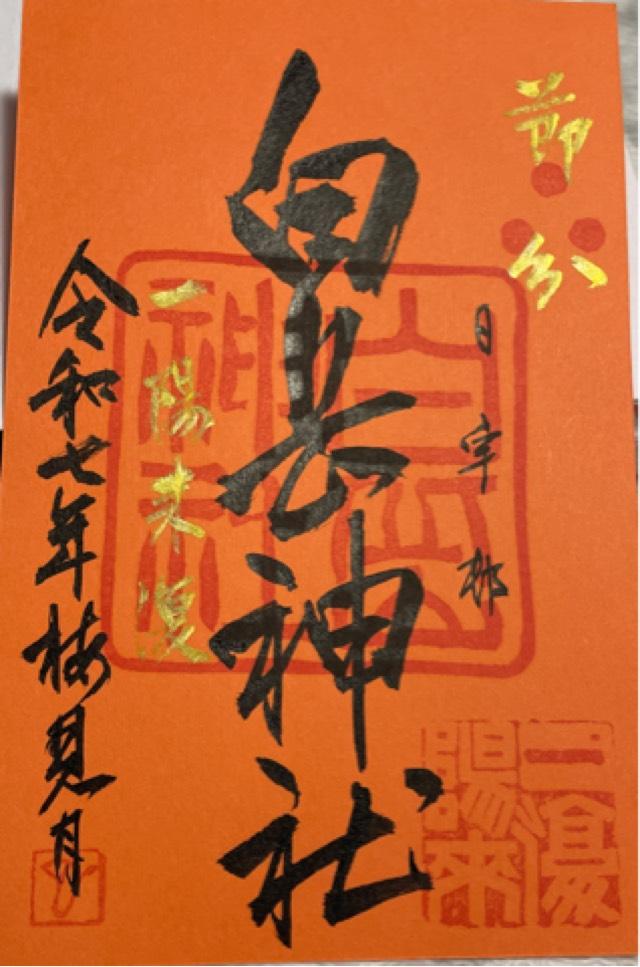 節分
日宇郷
白岳神社
一陽来復
令和七年梅見月
白岳
神社
一陽来復